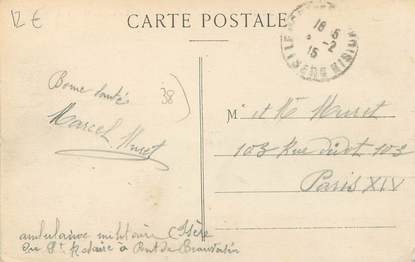 12 €
CARTE POSTALE
18 5
-2
15
Bonne Santé
38)
Marcel Muret
M et Me Muret
103 Rue Didot 103
Paris XIV
ambulance militaire (Isère
à Pont de Beauvoisin